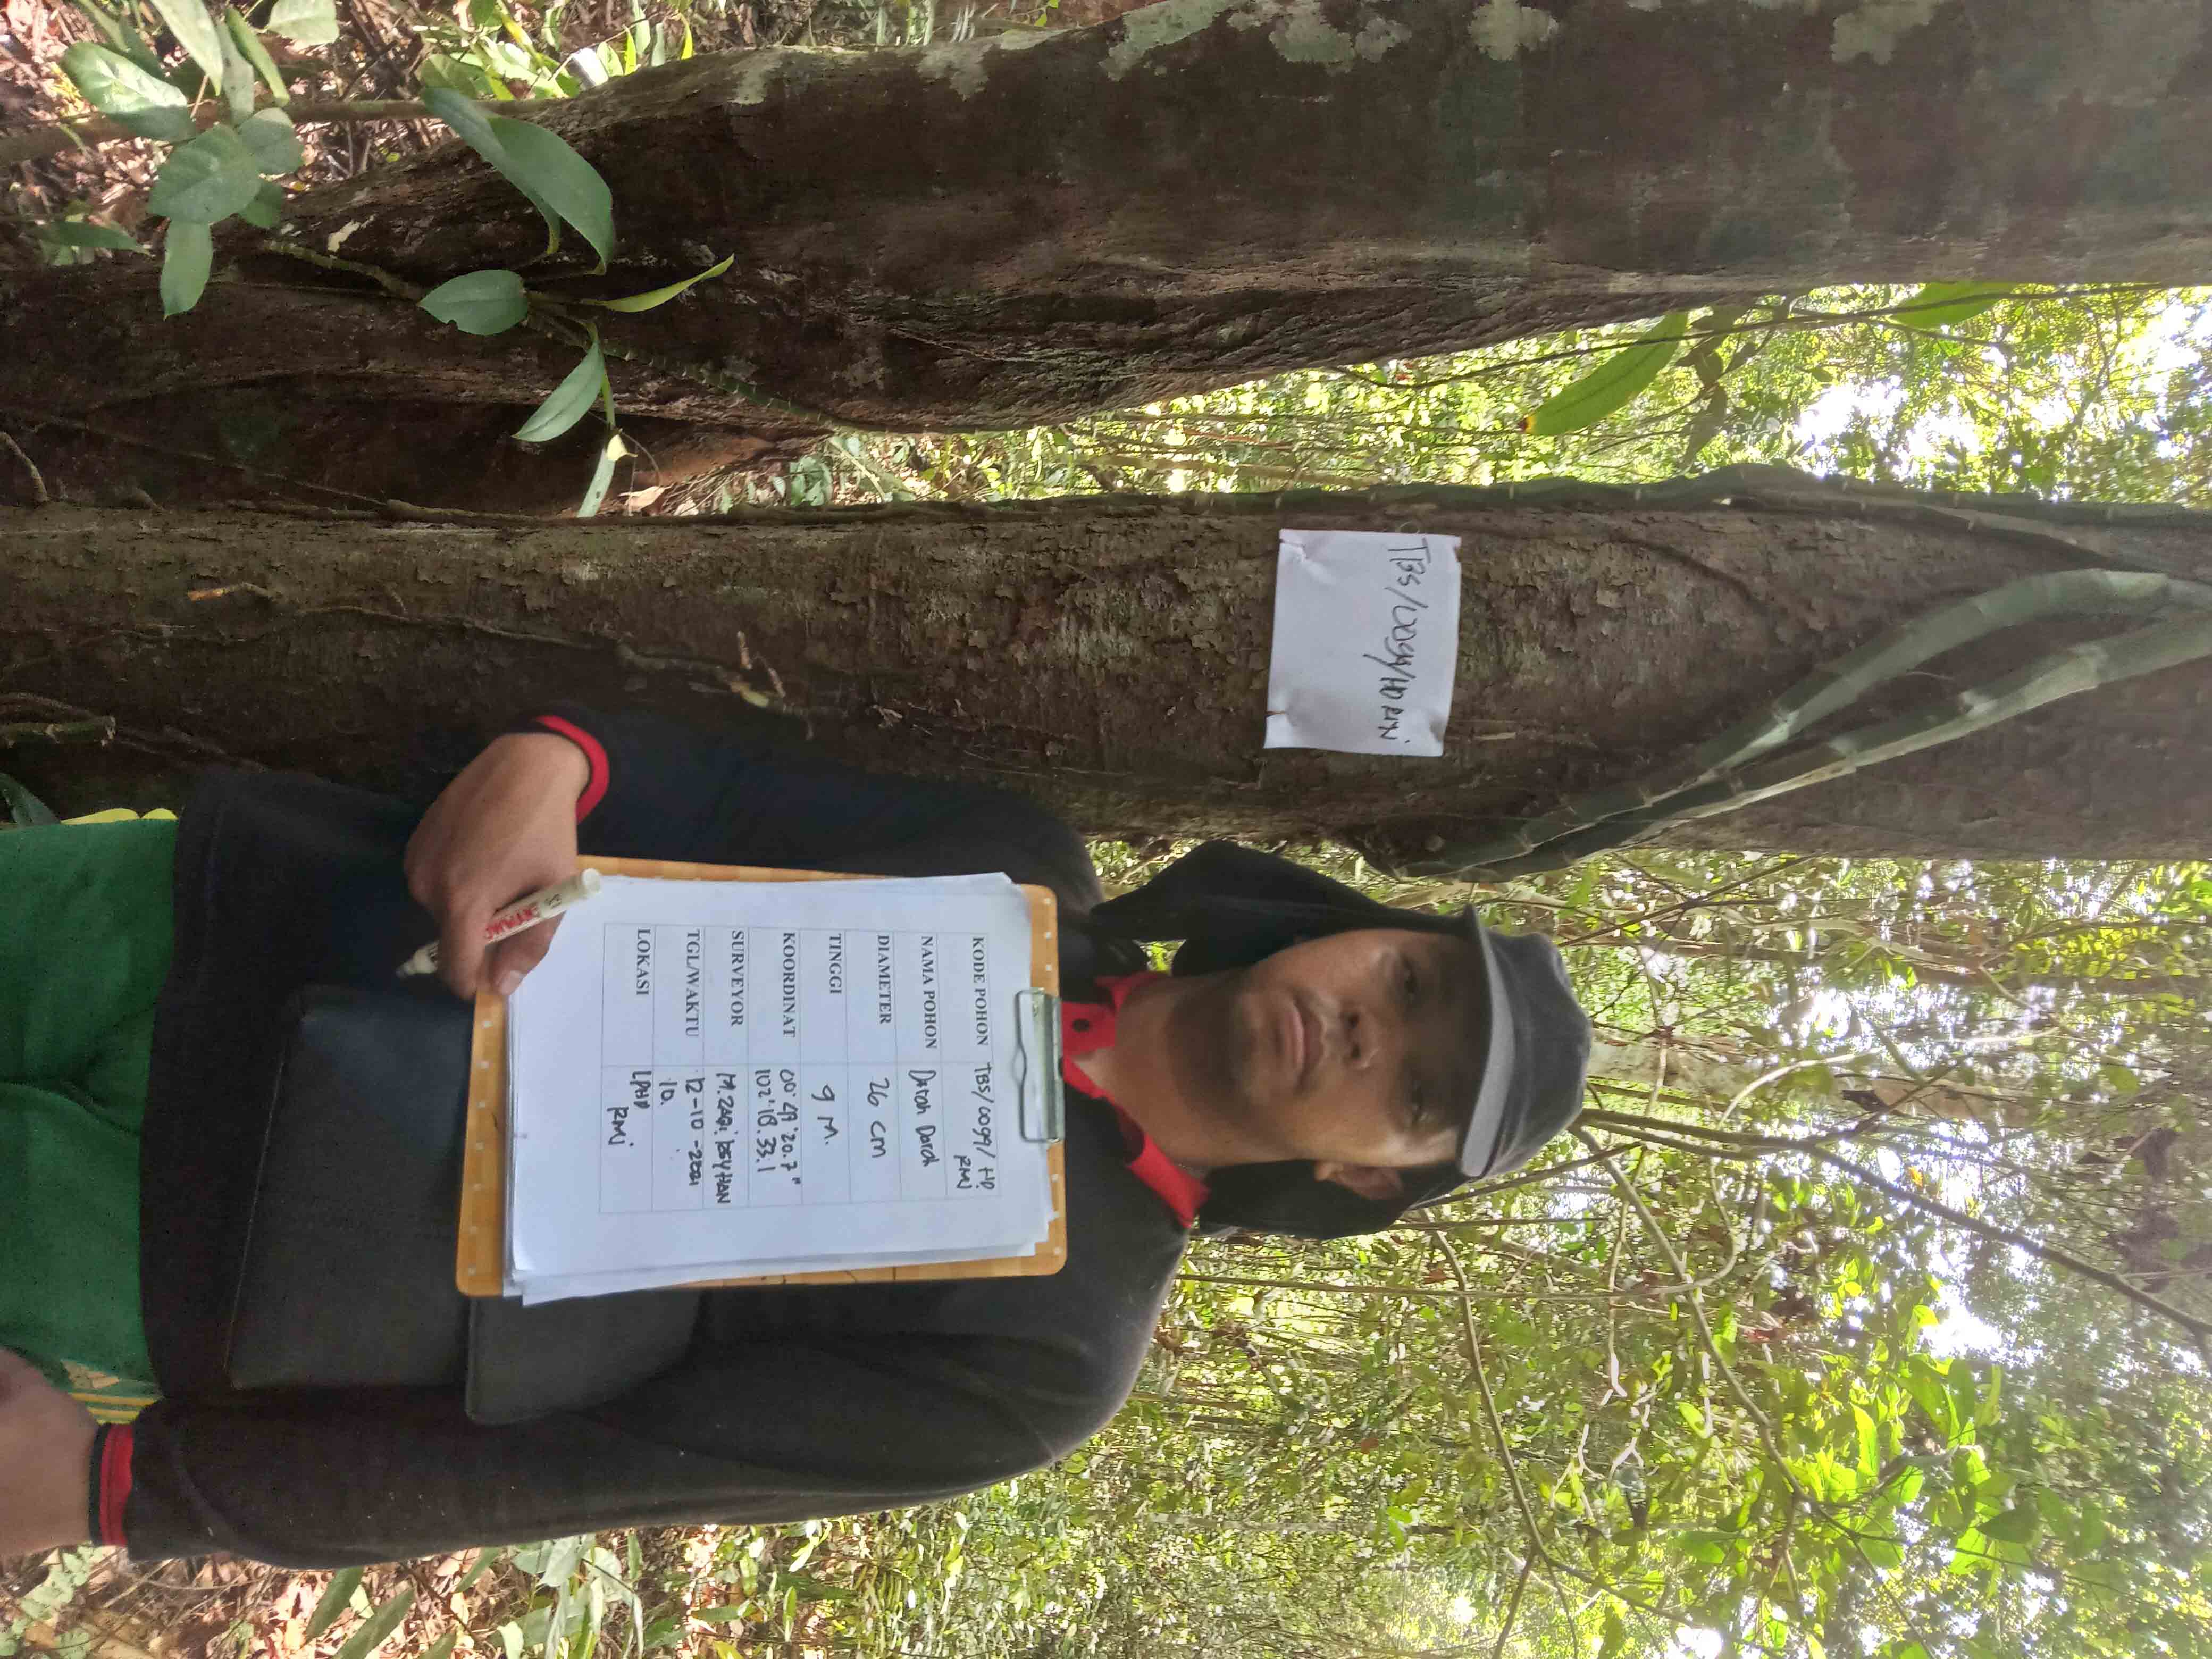 TBS/0099/HD RMJ
KODE POHON TBS/0099/HD.
RMJ
NAMA POHON Darah Darah
DIAMETER 26 cm
TINGGI 9 M.
KOORDINAT 00°49'20.7"
102°18.33.1
SURVEYOR
TGL/WAKTU 12-10-2021
10.
LOKASI LPHD
RMJ